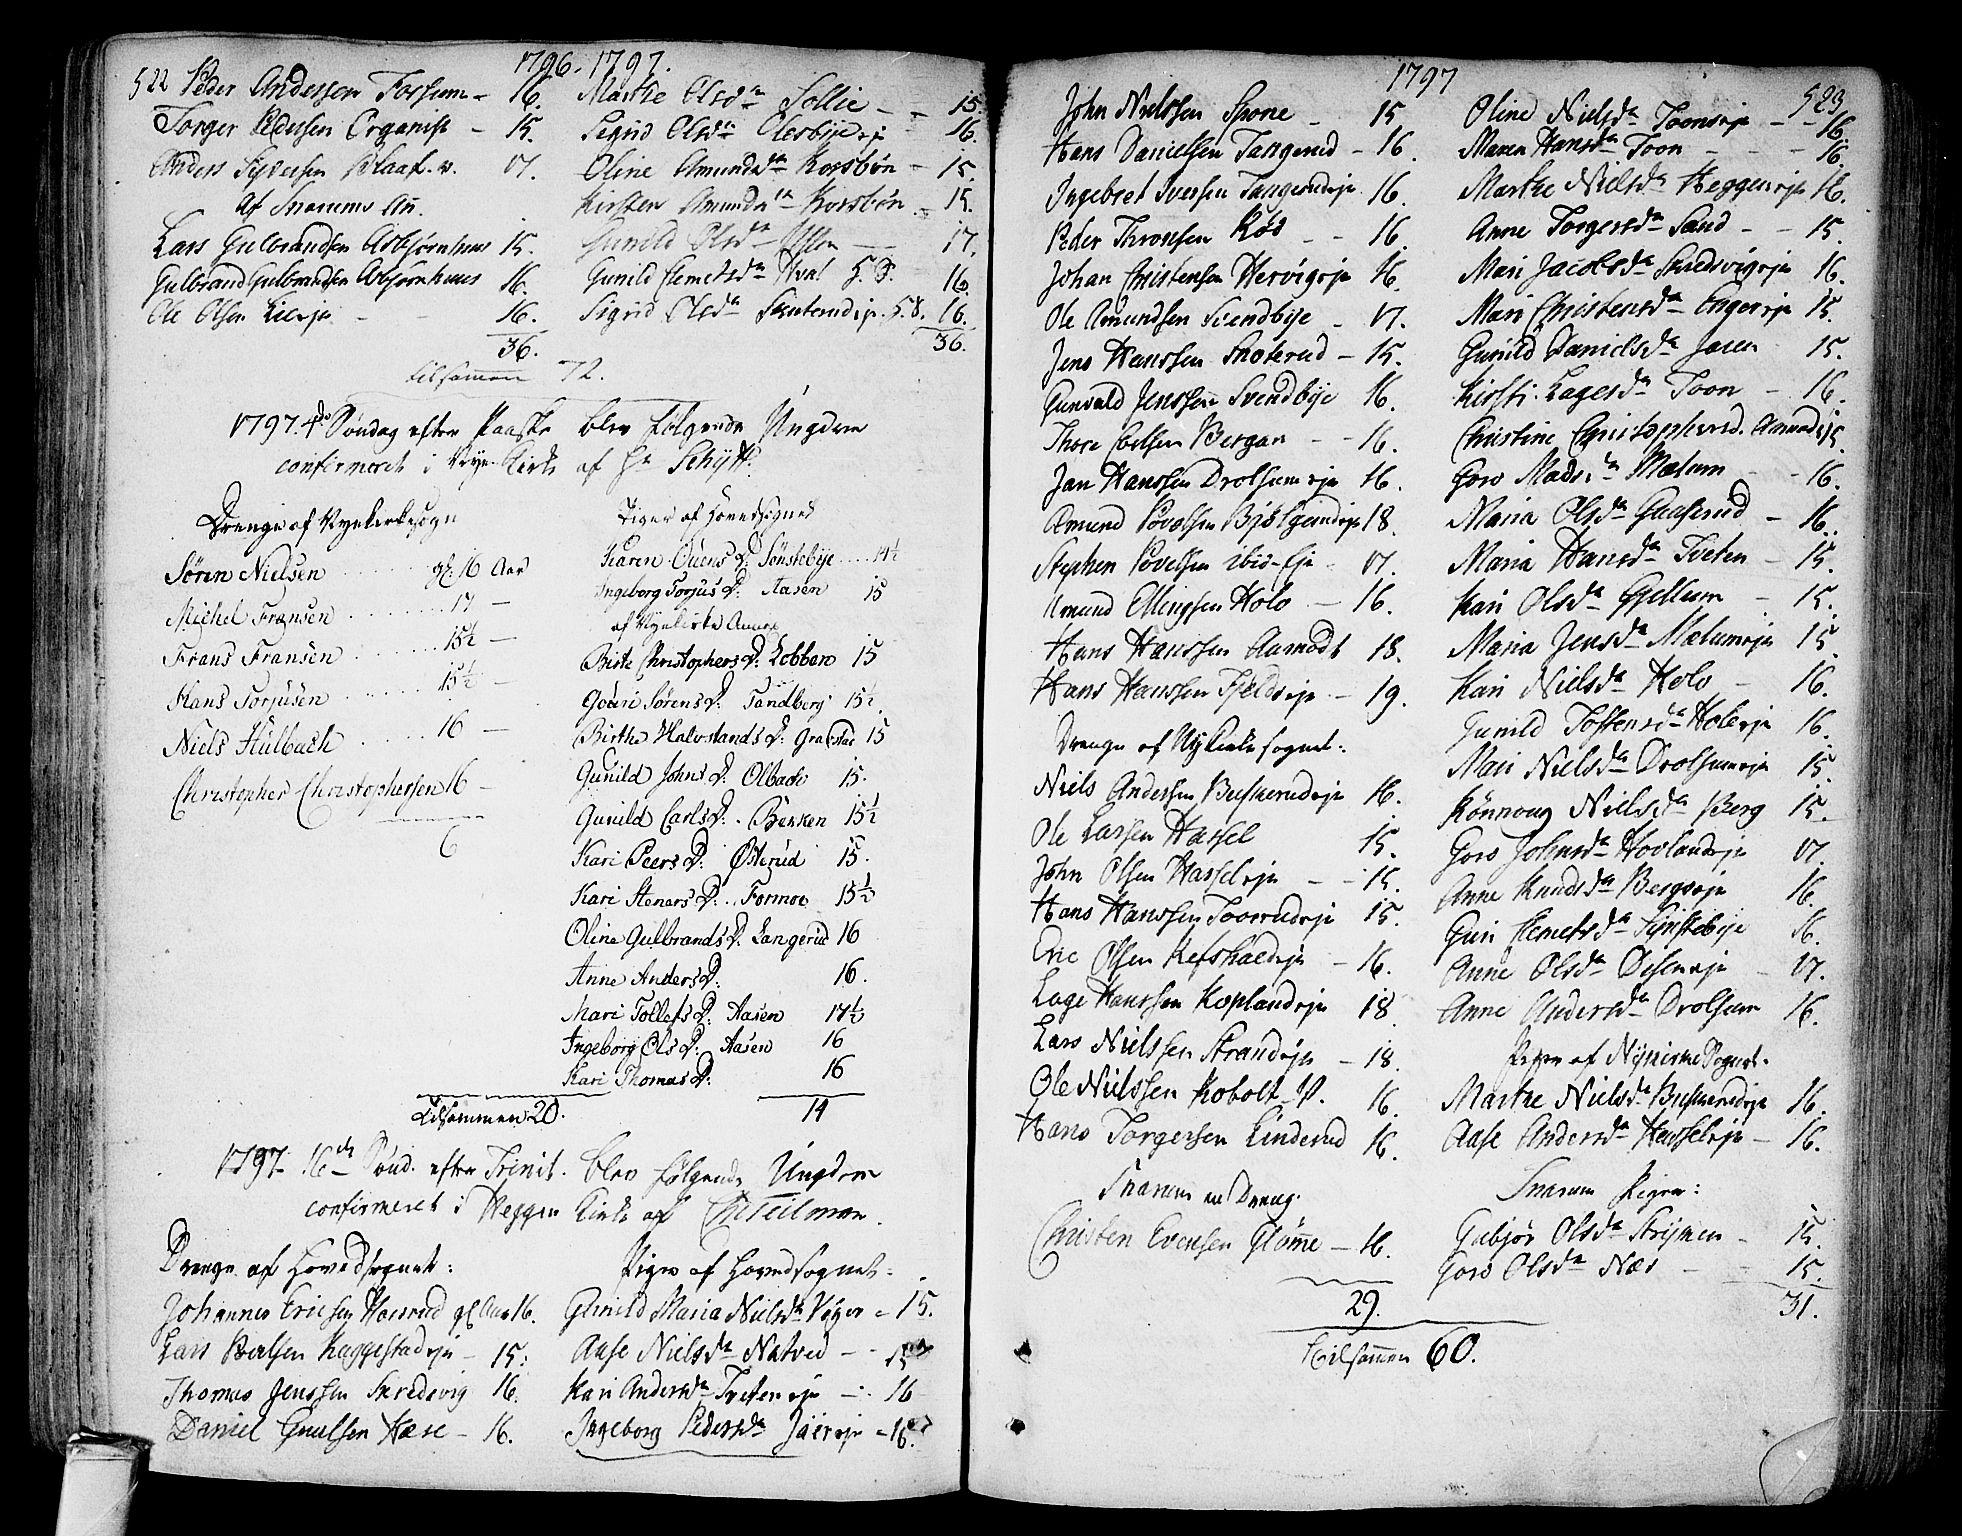 522
1796. 1797.
Peder Andersen Fossum - 16.
Torger Pedersen - 15.
Anders Siversen 17.
Af Snarums An.
Lars Gulbrandsen Asbjørnhuus 15.
Gulbrand Gulbrandsen Asbjørnhuus 16.
Ole Olsen Lierje - - 16.
36.
Marthe Olsda Sollie - - 15.
Sigrid Olsda 16.
Oline Amundsda Korsbøn - 15.
Kirsten Amundsda Korsbøn - 15.
Gunild Olsda - 17.
Gunild Clemetsda Hval S. B. 16.
Sigrid Olsda Skuterudeje. S. B. 16.
36.
tilsammen 72.
1797. 4de Søndag efter Paaske blev følgende Ungdom
confirmeret i Nyekirke af Hr Schytt.
Drenge af Nyekirkesogn
Søren Nielsen gl: 16 Aar
Michel Fransen 17 -
Frans Fransen 15½ -
Hans Torjusen 15½ -
Niels Hülbach 16 -
Christopher Christophersen 16 -
6
Piger af Hovedsognet
Karen Ouens D: Sønstebye 14½
Ingeborg Torjus D: Aasen 15
af Nyekirke Annex
Birte Christophers D: Lobben 15
Gouri Sørens D: Sandberg 15½
Birthe Halvorlands D: 15
Gunild Johns D: Olbach 15.
Gunild Carls D: Benken 15½
Kari Peers D: Østerud 15.
Kari Steners D: Formoe 15½
Oline Gulbrands D. Langerud 16
Anne Anders D: 16.
Mari Tollefs D: Aasen 17½
Ingeborg Ols D: Aasen 16
Kari Thomas D: 16
14
Tilsammen 20.
1797. 16de Sønd. efter Trinit. blev følgende Ungdom
confirmeret i Heggen Kirke af Teilman.
Drenge af Hovedsognet:
Johannes Ericsen gl Aar 16.
Lars Paalsen Kaggestadeje - 15:
Thomas Jenssen Skredsvig 16.
Daniel Gunulfsen Hære - 16.
Piger af Hovedsognet.
Gunild Maria Nielsda Viger - 15.
Aase Nielsda Natved - - 15
Kari Andersda Tveteneje - 16
Ingeborg Pedersda - 16.
1797
523
John Nielssen Spone - 15
Hans Danielsen Tangerud - 16.
Ingebret Iversen Tangerudeje 16.
Peder Thronsen Rød - - 16.
Johan Christensen Hervigeje 16.
Ole Amundsen Svendbye - 17.
Jens Hanssen Snoterud - 15.
Gunvald Jenssen Svendbye 16.
Thore Ebelsen Bergan - - 16.
Jan Hanssen Drolsumeje 16.
Amund Povelsen 18.
Stephen Povelsen ibid-Eje - 17.
Amund Ellingsen Holo - 16.
Hans Hanssen Aamodt 18.
Hans Hanssen Fjeldeje - 19.
Drenge af Nykirkesognet:
Niels Andersen Buskerudeje 16.
Ole Larsen Hassel 15.
John Olsen Hasseleje - - 15.
Hans Hanssen 15.
Eric Olsen - 16.
Lage Hanssen Koplandeje 18.
Lars Nielssen Strandeje - 18.
Ole Nielssen Kobolt-V. 16.
Hans Torgersen Linderud 16.
Snarum en Dreng.
Christen Evensen Glømme - 16.
29.
Oline Nielsda Tooneeje - - 16.
Maren Hansda Toon - - - 16.
Marthe Nielsda Heggeneje 16.
Anne Torgersda Sand - - 15.
Mari Jacobsda Skredsvigeje 16.
Mari Christensda Engereje 15.
Gunild Danielsda Jaren 15.
Kirsti Lagesda Toon - 16.
Christine Christophersd. Aamodt 15.
Goro Madsda Mælum - - 16.
Maria Olsda Gaaserud - 16.
Maria Hansda Tveten - 15.
Kari Olsda Gjellum - 15.
Maria Jensda Mælumeje 15.
Kari Nielsda Holo - 16.
Gunild Tostensda Holeeje 16.
Mari Nielsda Drolsumeje 15.
Rønnoug Nielsda Berg 15.
Goro Johnsda Hovlandeje 17.
Anne Knudsda Bergeje 16.
Guri Clemetsda Sønstebye 16.
Anne Olsda - 17.
Anne Andersda Drolsum 16.
Piger af Nykirke Sognet.
Marthe Nielsda Buskerudeje 16.
Aase Andersda Hasseleje - 16.
Snarum Piger:
Gubjør Olsda - 15.
Goro Olsda Næs - - 15.
31.
tilsammen 60.